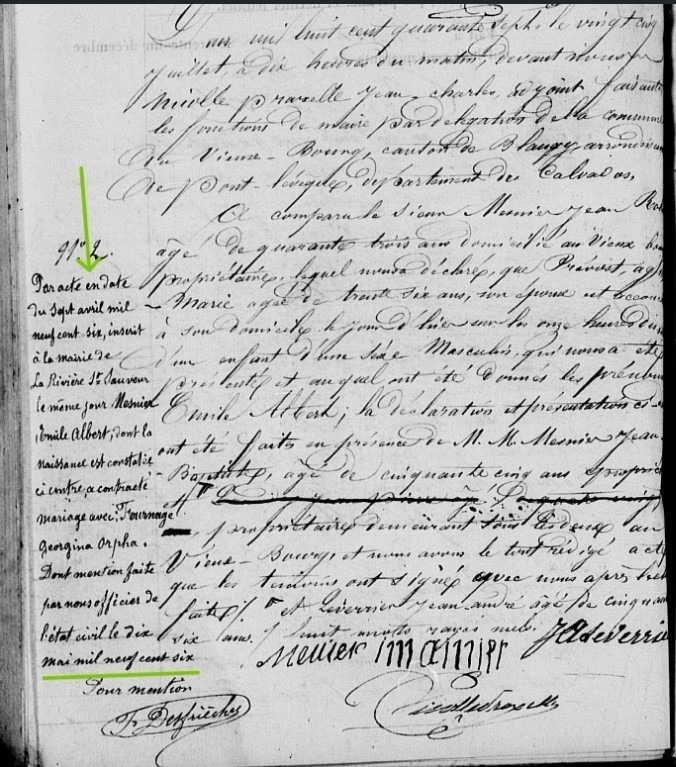 L'an mil huit cent quarante sept, le vingt cinq
Juillet, à dix heures du matin, devant nous
Nicolle Jean Charles, adjoint faisant
les fonctions de maire par délégation de la commune
du Vieux-Bourg, canton de Blangy, arrondis
de Pont-l'évêque, département du Calvados,
A comparu le sieur Mesnier Jean
âgé de quarante trois ans domicilié au Vieux
propriétaire, lequel nous a déclaré, que Prévost,
Marie agée de trente six ans, son épouse est accou
à son domicile le jour d'hier sur les onze heures du
d'un enfant d'un sexe Masculin, qui nous a été
présenté et auquel ont été donnés les prénoms
Emile Albert; la déclaration et présentation ci-
ont été faits en présence de M. M. Mesnier Jean
Baptiste, âgé de cinquante cinq ans proprié
et
propriétaire demeurant tous les deux au
Vieux-Bourg, et nous avons le tout rédigé acte
que les témoins ont signé avec nous après lecture
faite /. et Leverrier Jean andré âgé de cinquan
six ans. / huit mots rayés nuls. JALeverrie
Mesnier
N° 2.
Par acte en date
du Sept avril mil
neuf cent six, inscrit
à la mairie de
La Rivière St Sauveur
le même jour Mesnier
Emile Albert, dont la
naissance est constatée
ci contre, a contracté
mariage avec: Fournage
Georgina Orpha.
Dont mention faite
par nous officier de
l'état civil le dix
mai mil neuf cent six
Pour mention